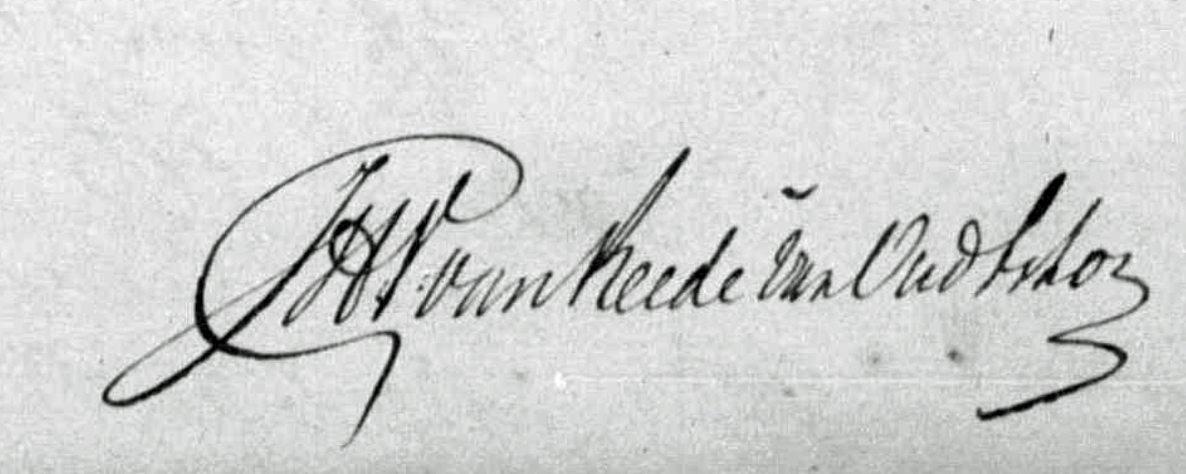 JHF van Reede van Oudtshoorn